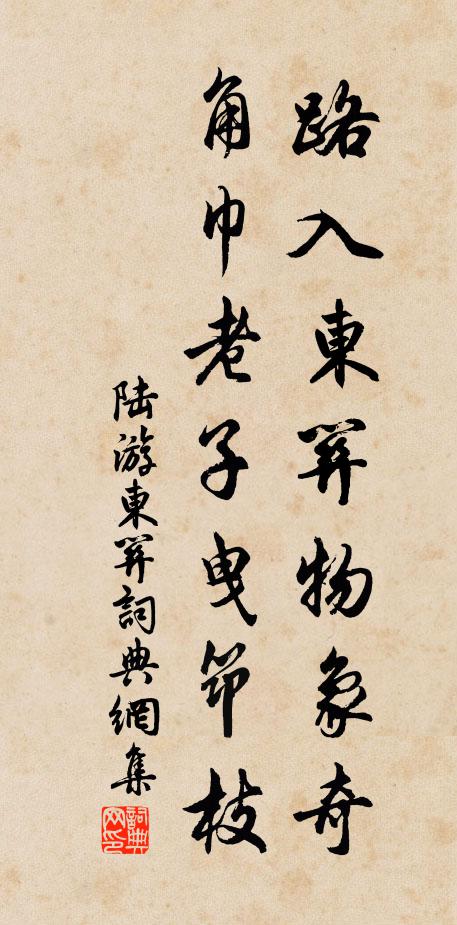 路入東關物象奇
角巾老子曳筇枝
陸游東關詞典網集
詞典网印